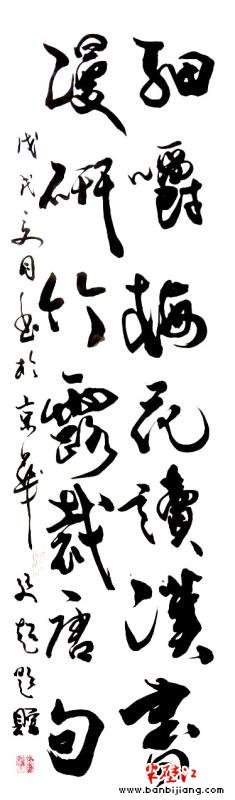 細嚼梅花讀漢書
漫研竹露裁唐句
戊戌夏月書於京華
半壁江
www.banbijiang.com